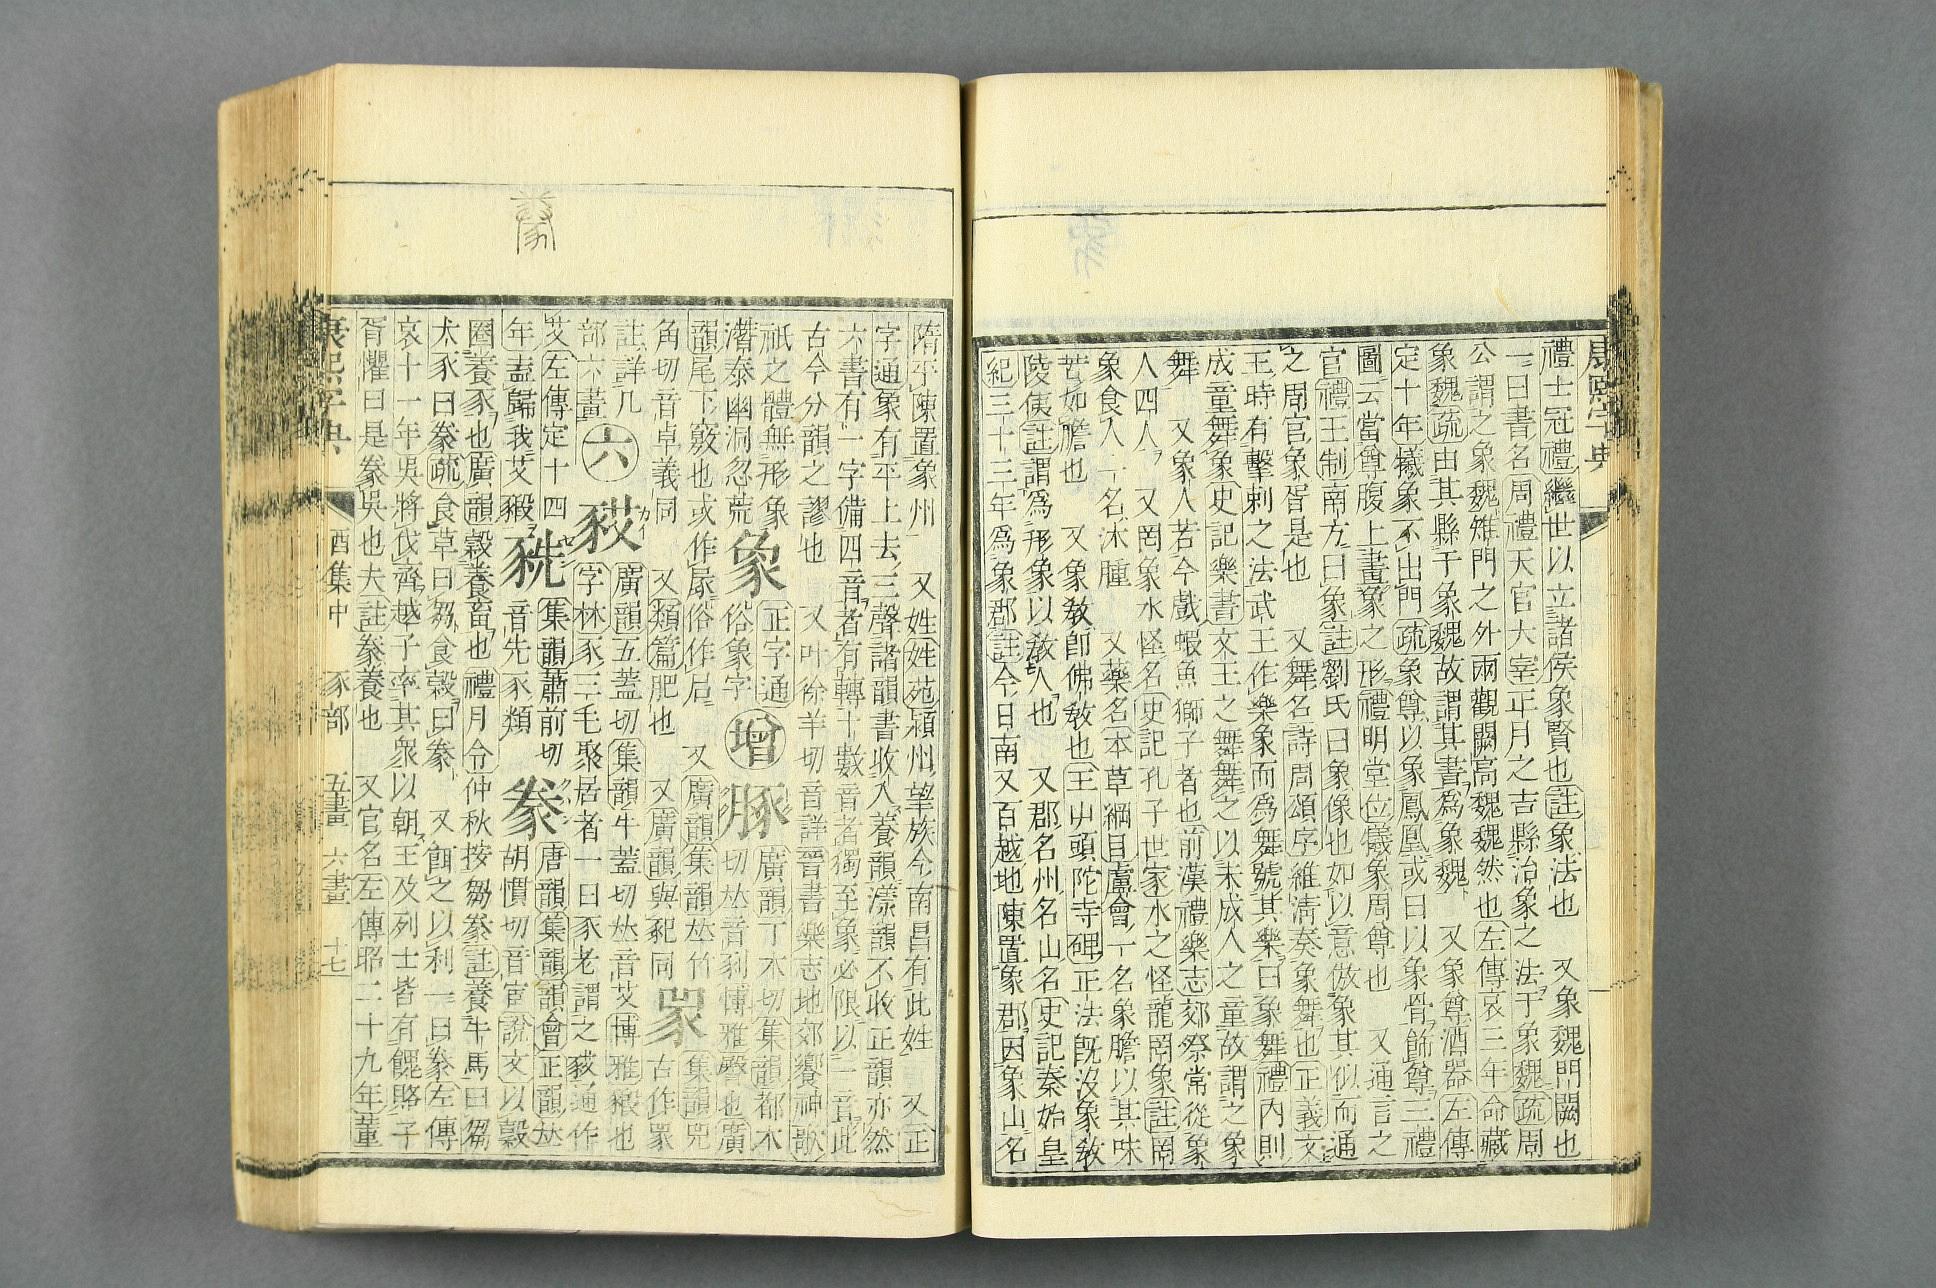 康熙字典
禮士冠禮繼世以立諸侯象賢也註象法也　又象魏門闕也
一曰書名周禮天官大宰正月之吉縣治象之法于象魏疏周
公謂之象魏雉門之外兩觀闕高魏魏然也左傳哀三年命藏
象魏疏由其縣于象魏故謂其書爲象魏　又象尊酒器左傳
定十年犧象不出門疏象尊以象鳳凰或曰以象骨飾尊三禮
圖云當尊腹上畫象之形禮明堂位犧象周尊也　又通言之
官禮王制南方曰象註劉氏曰象像也如以意倣象其似而通
之周官象胥是也　又舞名詩周頌序維淸奏象舞也正義文
王時有擊刺之法武王作樂象而爲舞號其樂曰象舞禮內則
成童舞象史記樂書文王之舞舞之以未成人之童故謂之象
舞　又象人若今戲蝦魚獅子者也前漢禮樂志郊祭常從象
人四人　又罔象水怪名史記孔子世家水之怪龍罔象註罔
象食人一名沐腫　又藥名本草綱目盧會一名象膽以其味
苦如膽也　又象敎卽佛敎也王屮頭陀寺碑正法旣沒象敎
陵夷註謂爲形象以敎人也　又郡名州名山名史記秦始皇
紀三十三年爲象郡註今日南又百越地陳置象郡因象山名
隋平陳置象州　又姓姓苑潁州望族今南昌有此姓　又正
字通象有平上去三聲諸韻書收入養韻漾韻不收正韻亦然
六書有一字備四音者有轉十數音者獨至象必限以一音此
古今分韻之謬也　又叶徐羊切音詳晉書樂志地郊饗神歌
祇之體無形象潛泰幽洞忽荒
象正字通俗象字
增
豚廣韻丁木切集韻都木切𠀤音剢博雅臀也廣韻尾下竅也或作𡰪俗作𡰪　又廣韻集韻𠀤竹角切音卓義同　又類篇肥也　又廣韻與豝同
𧰲集韻兕古作𧰲註詳儿部六畫
六
䝅廣韻五蓋切集韻牛蓋切𠀤音艾博雅豛也字林豕三毛聚居者一曰豕老謂之䝅通作艾左傳定十四年盍歸我艾豭
㹌集韻蕭前切音先豕類
豢唐韻集韻韻會正韻𠀤胡慣切音宦說文以穀圈養豕也廣韻穀養畜也禮月令仲秋按芻豢註養牛馬曰芻犬豕曰豢疏食草曰芻食穀曰豢　又餌之以利一曰豢左傳
哀十一年吳將伐齊越子率其衆以朝王及列士皆有饋賂子
胥懼曰是豢吳也夫註豢養也　又官名左傳昭二十九年董
康熙字典　酉集中　豕部　五畫　六畫　十七